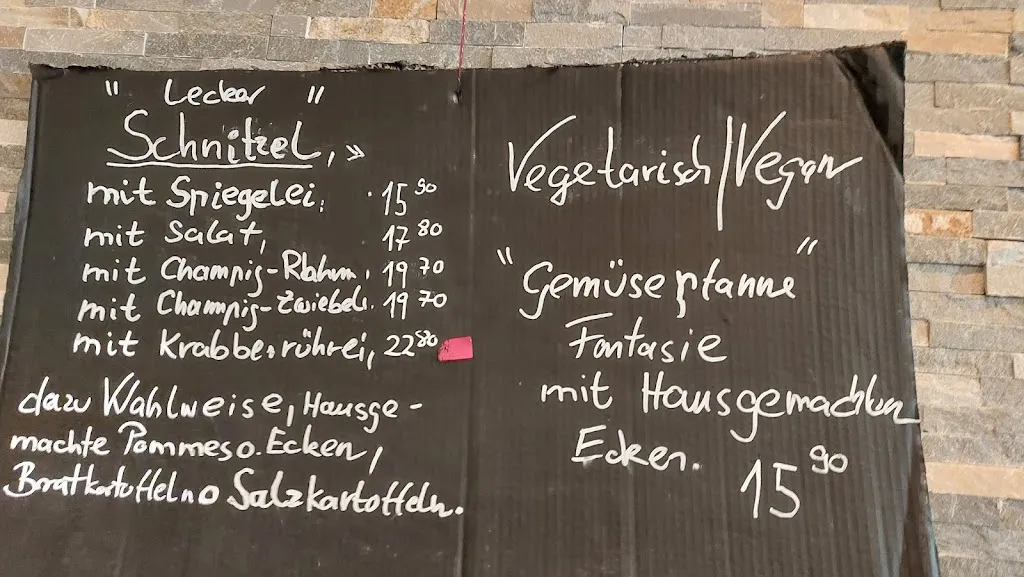 " Lecker "
Schnitzel, »
mit Spiegelei, 15 90
mit Salat, 17 80
mit Champig-Rahm, 19 70
mit Champig-Zwiebel. 19 70
mit Krabbenrührei, 22 80
dazu Wahlweise, Hausge-
machte Pommes o. Ecken,
Bratkartoffeln o Salzkartoffeln.
Vegetarisch/Vegan
"Gemüsepfanne"
Fantasie
mit Hausgemachten
Ecken.
15 90